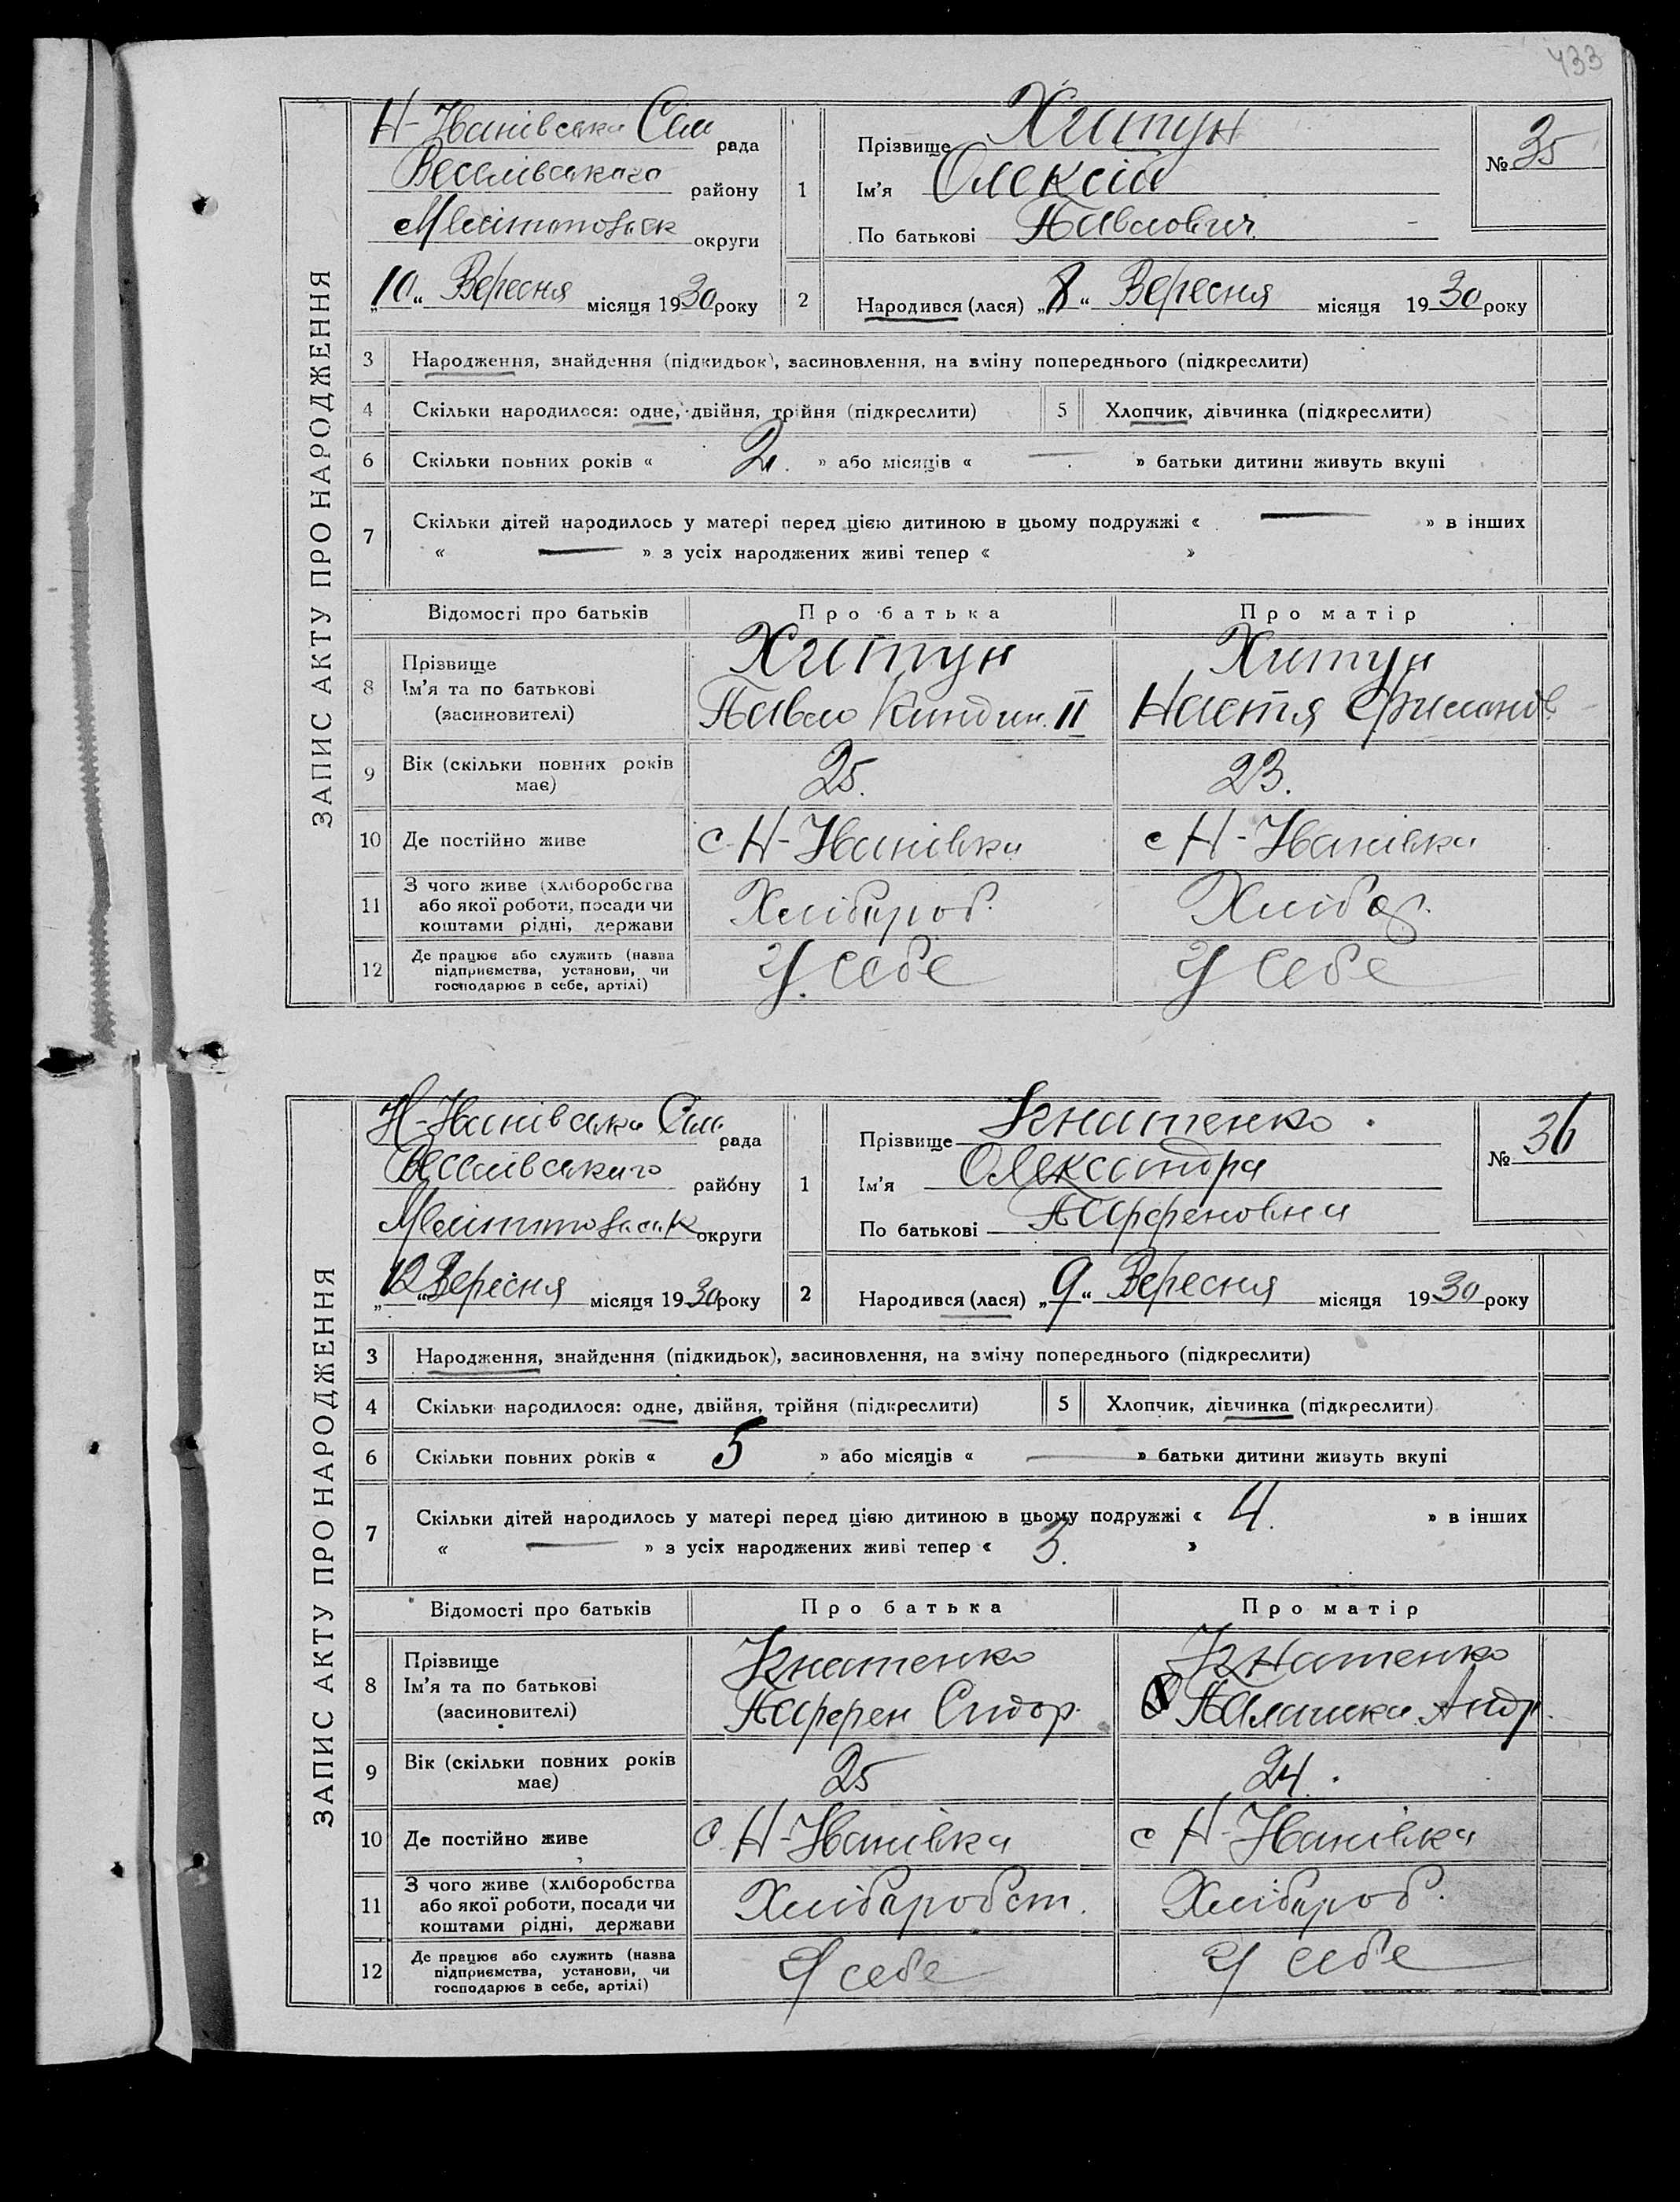 433
ЗАПИС АКТУ ПРО НАРОДЖЕННЯ
Н-Іванівська Сіль рада
Веселівського району
Меліт округи
"10" Вересня місяця 1930 року
1
Прізвище Хитун
Ім'я Олексій
По батькові Павлович
№ 35
2
Народився (лася) "8" Вересня місяця 1930 року
3 Народження, знайдення (підкидьок), засиновлення, на зміну попереднього (підкреслити)
4 Скільки народилося: одне, двійня, трійня (підкреслити) 5 Хлопчик, дівчинка (підкреслити)
6 Скільки повних років « 2. » або місяців « — » батьки дитини живуть вкупі
7 Скільки дітей народилось у матері перед цією дитиною в цьому подружжі « — » в інших
« — » з усіх народжених живі тепер « »
Відомості про батьків Про батька Про матір
8 Прізвище
Ім'я та по батькові
(засиновителі)
Хитун
Павло II
Хитун
Настя
9 Вік (скільки повних років має) 25. 23.
10 Де постійно живе с Н-Іванівка с Н-Іванівка
11 З чого живе (хліборобства
або якої роботи, посади чи
коштами рідні, держави
Хлібороб. Хлібор.
12 Де працює або служить (назва
підприємства, установи, чи
господарює в себе, артілі)
У себе У себе
ЗАПИС АКТУ ПРО НАРОДЖЕННЯ
Н-Іванівська Сіль рада
Веселівського району
Меліт округи
"12" Вересня місяця 1930 року
1
Прізвище Ігнатенко
Ім'я Олександра
По батькові Парфеновна
№ 36
2
Народився (лася) "9" Вересня місяця 1930 року
3 Народження, знайдення (підкидьок), засиновлення, на зміну попереднього (підкреслити)
4 Скільки народилося: одне, двійня, трійня (підкреслити) 5 Хлопчик, дівчинка (підкреслити)
6 Скільки повних років « 5 » або місяців « — » батьки дитини живуть вкупі
7 Скільки дітей народилось у матері перед цією дитиною в цьому подружжі « 4. » в інших
« — » з усіх народжених живі тепер « 3. »
Відомості про батьків Про батька Про матір
8 Прізвище
Ім'я та по батькові
(засиновителі)
Ігнатенко
Парфен Сидор.
Ігнатенко
Палашка Андр.
9 Вік (скільки повних років має) 25 24.
10 Де постійно живе с Н-Іванівка с Н-Іванівка
11 З чого живе (хліборобства
або якої роботи, посади чи
коштами рідні, держави
Хліборобст. Хлібороб.
12 Де працює або служить (назва
підприємства, установи, чи
господарює в себе, артілі)
У себе У себе